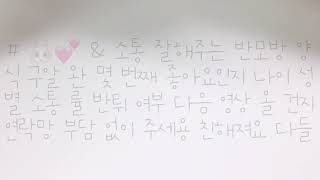 # 🐰💕 & 소통 잘해주는 반모방 양
식 구알 완 몇 번째 좋아요인지 나이 성
별 소통 률 반튀 여부 다음 영상 올 견지
연락망 부담 없이 주세용 친해져요 다들